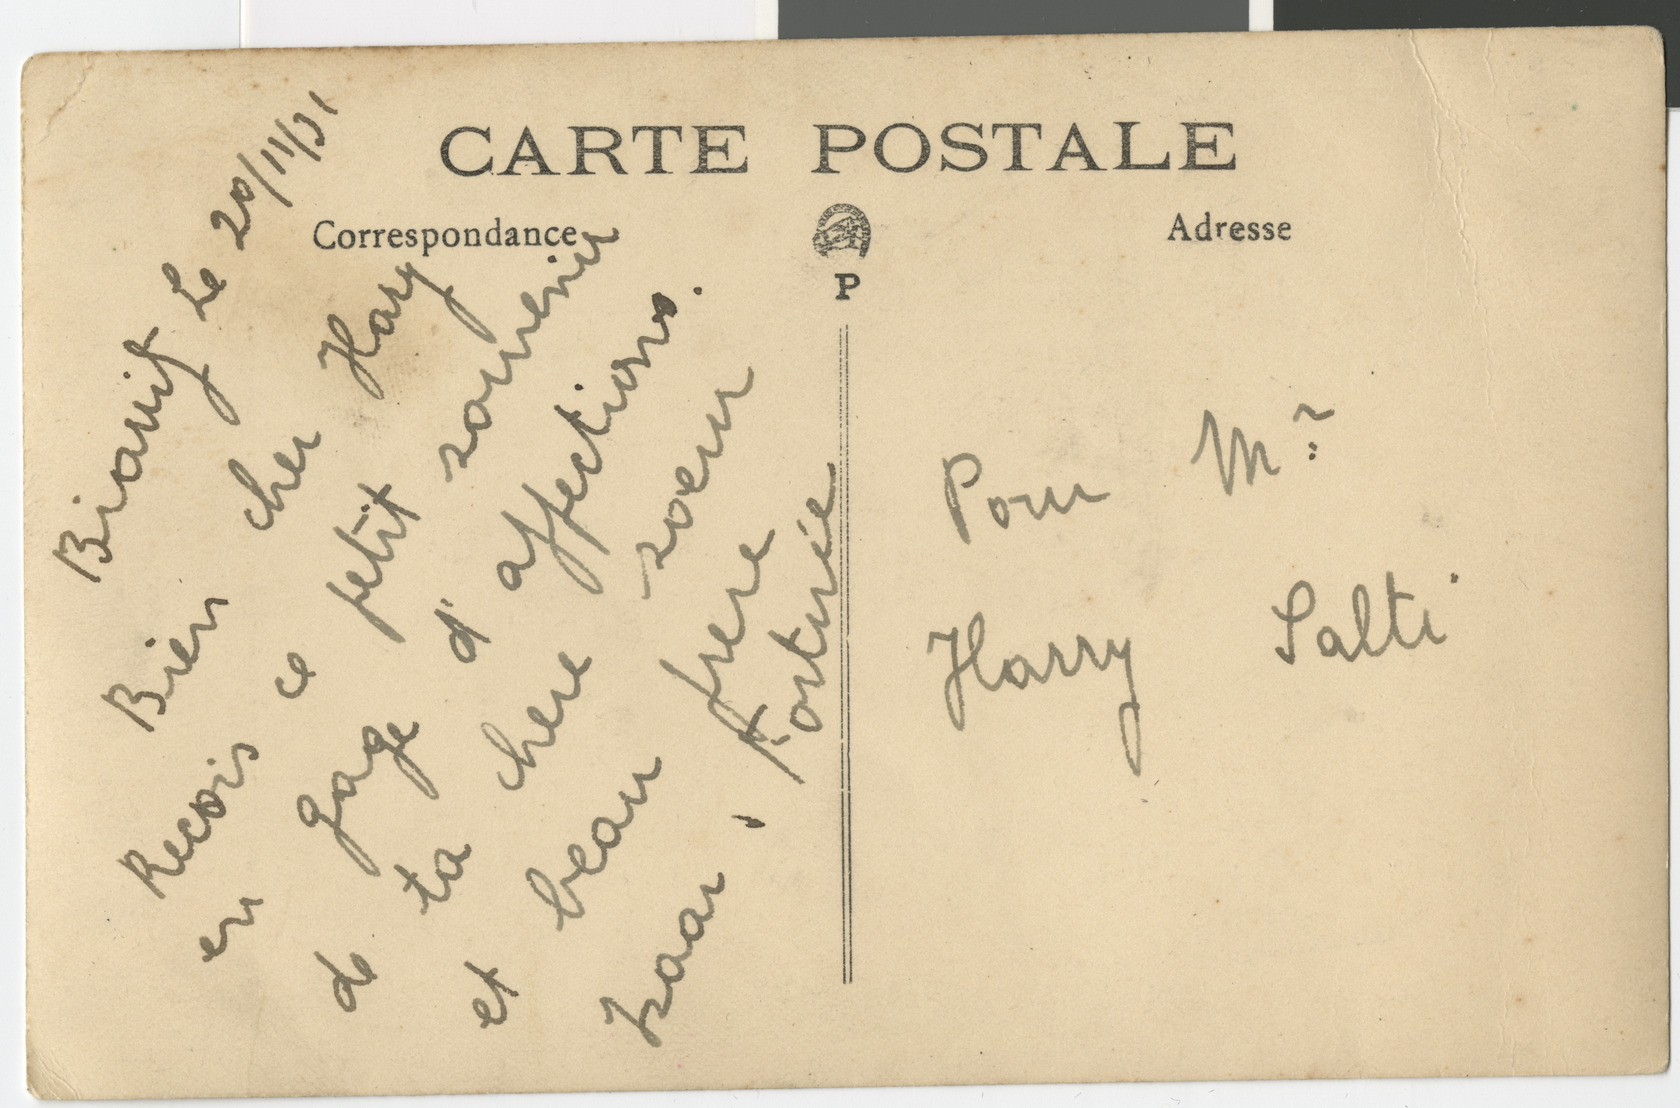 CARTE POSTALE
Correspondance
Adresse
P
Biarritz le 20/11/31
Bien cher Harry
Recois ce petit souvenir
en gage d'affections.
de ta chere soeur
et beau frere
Isaac, Fortunée
Pour Mr
Harry Salti